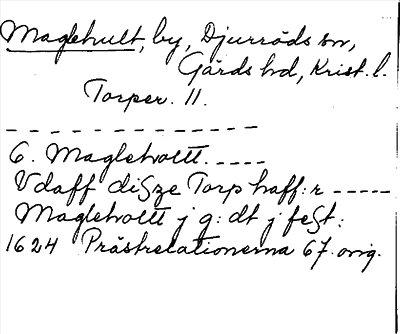 Maglehult, by, Djurröds sn,
Gärds hd, Krist. l.
Torper. 11.
- - - - - - - - - - - -
6. Magletvoltt. - - - -
Vdaff diſze Torp haff:r - - - - -
Magletvoltt j g: dt j feſt:
1624 Prästrelationerna 67. orig.